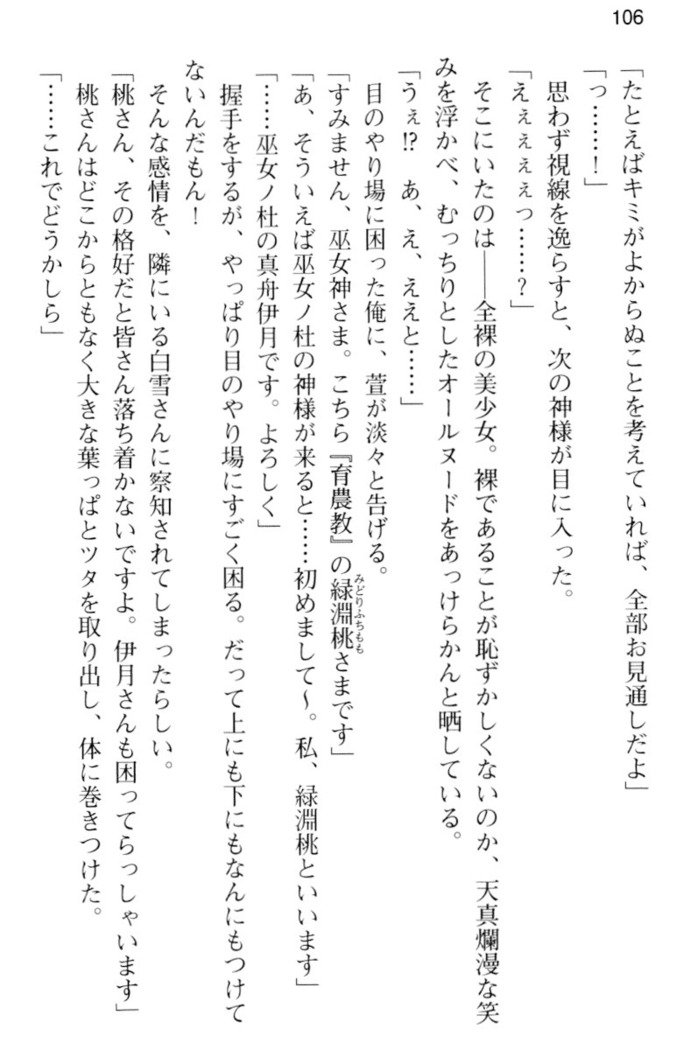 106
「たとえばキミがよからぬことを考えていれば、全部お見通しだよ」
「っ……！」
思わず視線を逸らすと、次の神様が目に入った。
「えぇぇぇぇっ……？」
そこにいたのは――全裸の美少女。裸であることが恥ずかしくないのか、天真爛漫な笑
みを浮かべ、むっちりとしたオールヌードをあっけらかんと晒している。
「うぇ!?　あ、え、ええと……」
目のやり場に困った俺に、萱が淡々と告げる。
「すみません、巫女神さま。こちら『育農教』の緑淵桃さまです」
みどりふちもも
「あ、そういえば巫女ノ杜の神様が来ると……初めまして～。私、緑淵桃といいます」
「……巫女ノ杜の真舟伊月です。よろしく」
握手をするが、やっぱり目のやり場にすごく困る。だって上にも下にもなんにもつけて
ないんだもん！
そんな感情を、隣にいる白雪さんに察知されてしまったらしい。
「桃さん、その格好だと皆さん落ち着かないですよ。伊月さんも困ってらっしゃいます」
桃さんはどこからともなく大きな葉っぱとツタを取り出し、体に巻きつけた。
「……これでどうかしら」